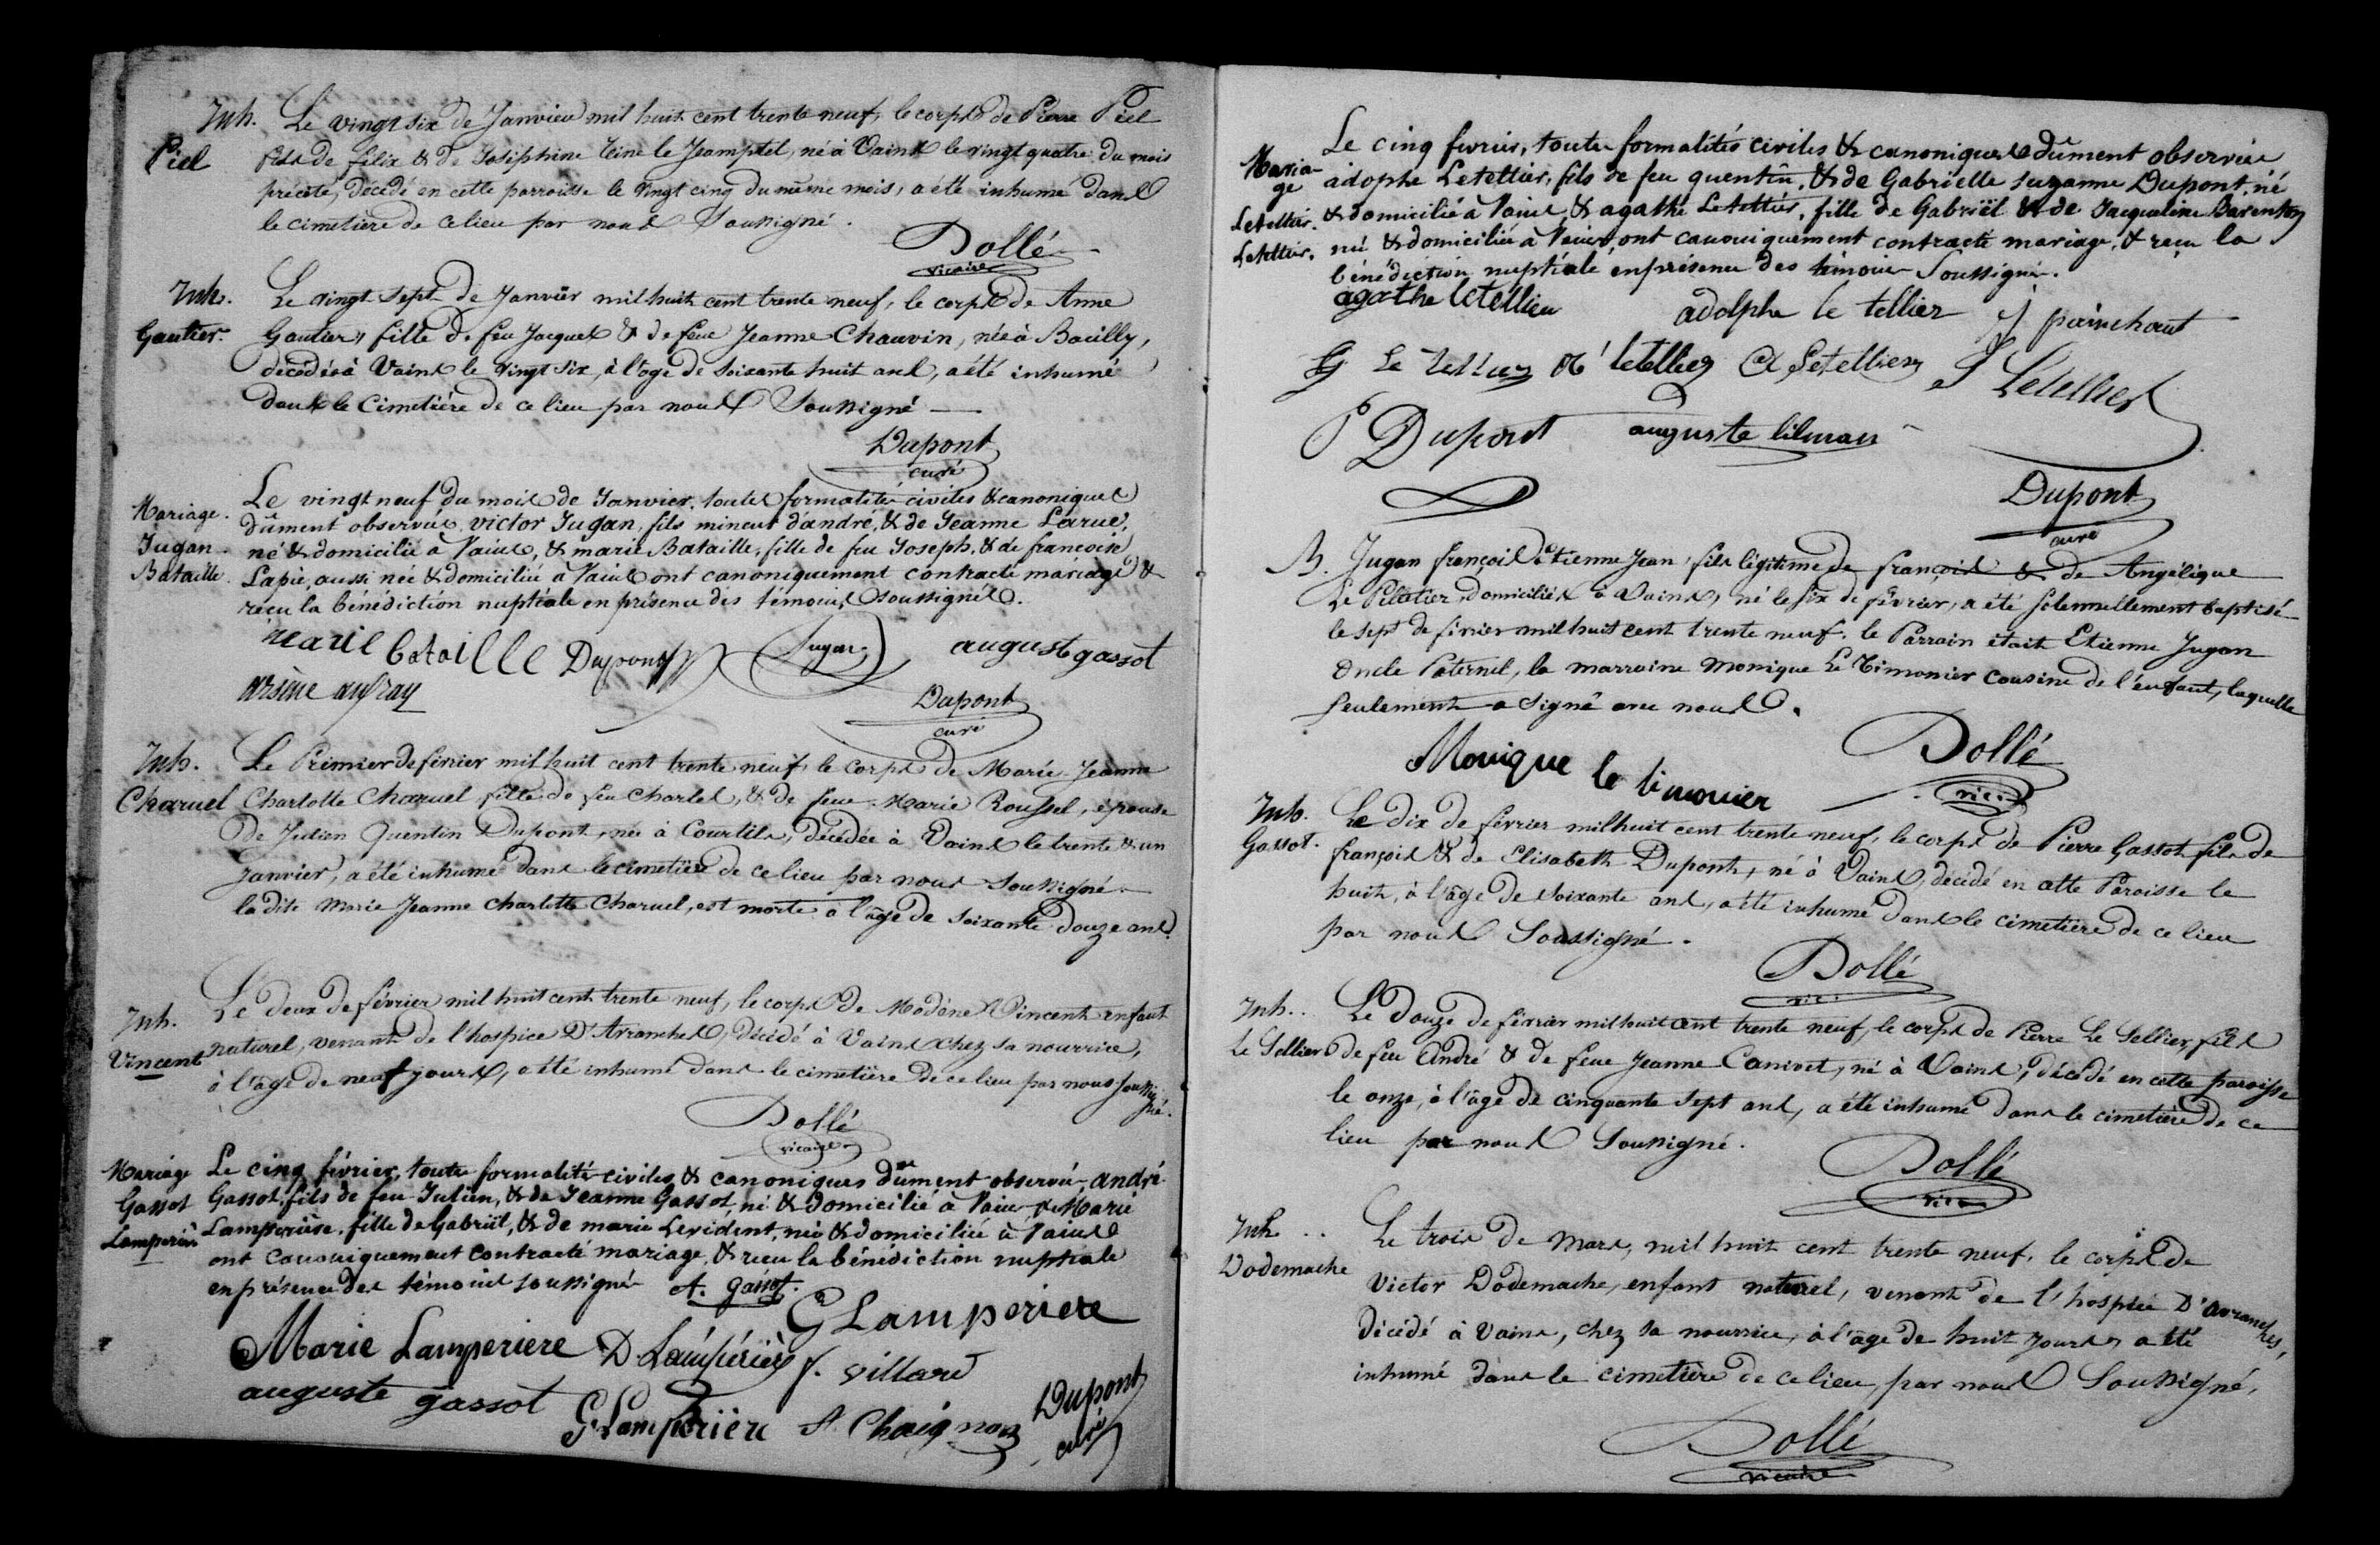 Inh. Le vingt six de Janvier mil huit cent trente neuf, le corps de Pierre Piel
Piel fils de félix & de Joséphine le Jamptel, né à Vains le vingt quatre du mois
précité, décédé en cette parroisse le vingt cinq du même mois, a été inhumé dans
le cimetière de ce lieu par nous Soussigné.
Dollé
vicaire
Inh. Le vingt Sept de Janvier mil huit cent trente neuf, le corps de Anne
Gautier. Gautier, fille de feu Jacques & de feue Jeanne Chauvin, née à Bacilly,
décédée à Vains le vingt six, à l'age de soixante huit ans, a été inhumé
dans le Cimetière de ce lieu par nous Soussigné
Dupont
curé
Le vingt neuf du mois de Janvier, toutes formalités civiles & canoniques
Mariage. dûment observées, victor Jugan, fils mineur d'andré, & de Jeanne Larue,
Jugan né & domicilié à Vains, & marie Bataille, fille de feu Joseph, & de francoise
Bataille. Lapie, aussi née & domiciliée à Vains ont canoniquement contracté mariage &
reçu la bénédiction nuptiale en présence des témoins soussignés.
marie bataille Dupont Jugan auguste gassot
arsène aufray Dupont
curé
Inh. Le Premier de février mil huit cent trente neuf, le corps de Marie Jeanne
Charuel Charlotte Charuel, fille de feu Charles, & de feue Marie Roussel, épouse
de Julien Quentin Dupont, née à Courtils, décédée à Vains le trente & un
Janvier, a été inhumé dans le cimetière de ce lieu par nous Soussigné.
la dite Marie Jeanne Charlotte Charuel, est morte à l'âge de soixante douze ans.
Inh. Le deux de février mil huit cent trente neuf, le corps de Modène Vincent enfant
Vincent naturel, venant de l'hospice D'Avranches, décédé à Vains chez sa nourrice,
à l'âge de neuf jours, a été inhumé dans le cimetière de ce lieu par nous Soussigné.
Dollé
vicaire
Mariage Le cinq février, toutes formalités civiles & canoniques dûment observées, andré
Gassot Gassot, fils de feu Julien, & de Jeanne Gassot, né & domicilié à Vains, & Marie
Lamperière Lamperière, fille de Gabriël, & de marie Levident, née & domiciliée à Vains
ont canoniquement contracté mariage, & reçu la bénédiction nuptiale
en présence des témoins soussignés A. gassot.
G Lamperiere
Marie Lamperiere D. Lampérière f. villard
auguste gassot G Lamperière A Chaignon Dupont
curé
Le cinq fevrier, toutes formalités civiles & canoniques dûment observées
Mariage adophe Letellier, fils de feu quentin, & de Gabrielle suzanne Dupont, né
Letellier. & domicilié à Vains, & agathe Letellier, fille de Gabriël & de Jacqueline Barenton
Letellier. née & domiciliée à Vains, ont canoniquement contracté mariage, & reçu la
bénédiction nuptiale en présence des témoins Soussignés.
agathe letellier adolphe le tellier J painchaut
G Le tellier letellier A Letellier S Letellier
P Dupont auguste
Dupont
curé
B. Jugan françois Etienne Jean, fils légitime de françois & de Angelique
Le Peletier, domiciliés à Vains, né le six de février, a été solennellement baptisé
le sept de février mil huit cent trente neuf. le Parrain était Etienne Jugan
Oncle Paternel, la marraine Monique Le Timonier cousine de l'enfant, laquelle
Seulement a Signé avec nous.
Monique le timonier Dollé
vic.
Inh. Le dix de février mil huit cent trente neuf, le corps de Pierre Gassot fils de
Gassot. françois & de Elisabeth Dupont, né à Vains, décédé en cette Paroisse le
huit, à l'âge de soixante ans, a été inhumé dans le cimetière de ce lieu
par nous Soussigné.
Dollé
vic.
Inh. Le Douze de février mil huit cent trente neuf, le corps de Pierre Le Sellier, fils
Le Sellier de feu André & de feue Jeanne Canivet, né à Vains, décédé en cette paroisse
le onze, à l'âge de cinquante sept ans, a été inhumé dans le cimetière de ce
lieu par nous Soussigné.
Dollé
vic.
Inh. Le trois de Mars, mil huit cent trente neuf, le corps de
Dodemache Victor Dodemache, enfant naturel, venant de l'hospice D'avranches,
décédé à Vains, chez sa nourrice, à l'âge de huit jours, a été
inhumé dans le cimetière de ce lieu, par nous Soussigné,
Dollé
vicaire